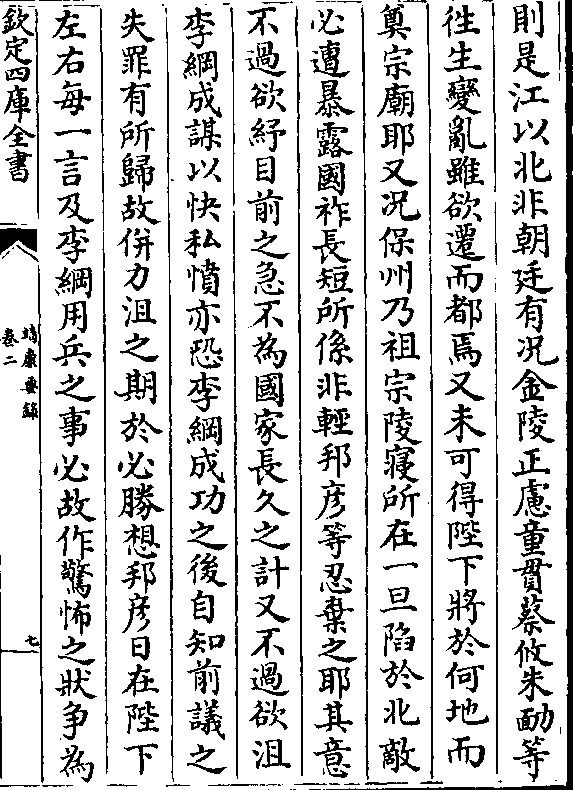 則是江以北非朝廷有况金陵正慮童貫蔡攸朱勔等
徃生變亂雖欲遷而都焉又未可得陛下將於何地而
奠宗廟耶又况保州乃祖宗陵寢所在一旦陷於北敵
必遭暴露國祚長短所係非輕邦彦等忍棄之耶其意
不過欲紓目前之急不為國家長久之計又不過欲沮
李綱成謀以快私憤亦恐李綱成功之後自知前議之
失罪有所歸故併力沮之期於必勝想邦彦日在陛下
左右每一言及李綱用兵之事必故作驚怖之狀争為
欽定四庫全書
靖康要錄
卷二
七